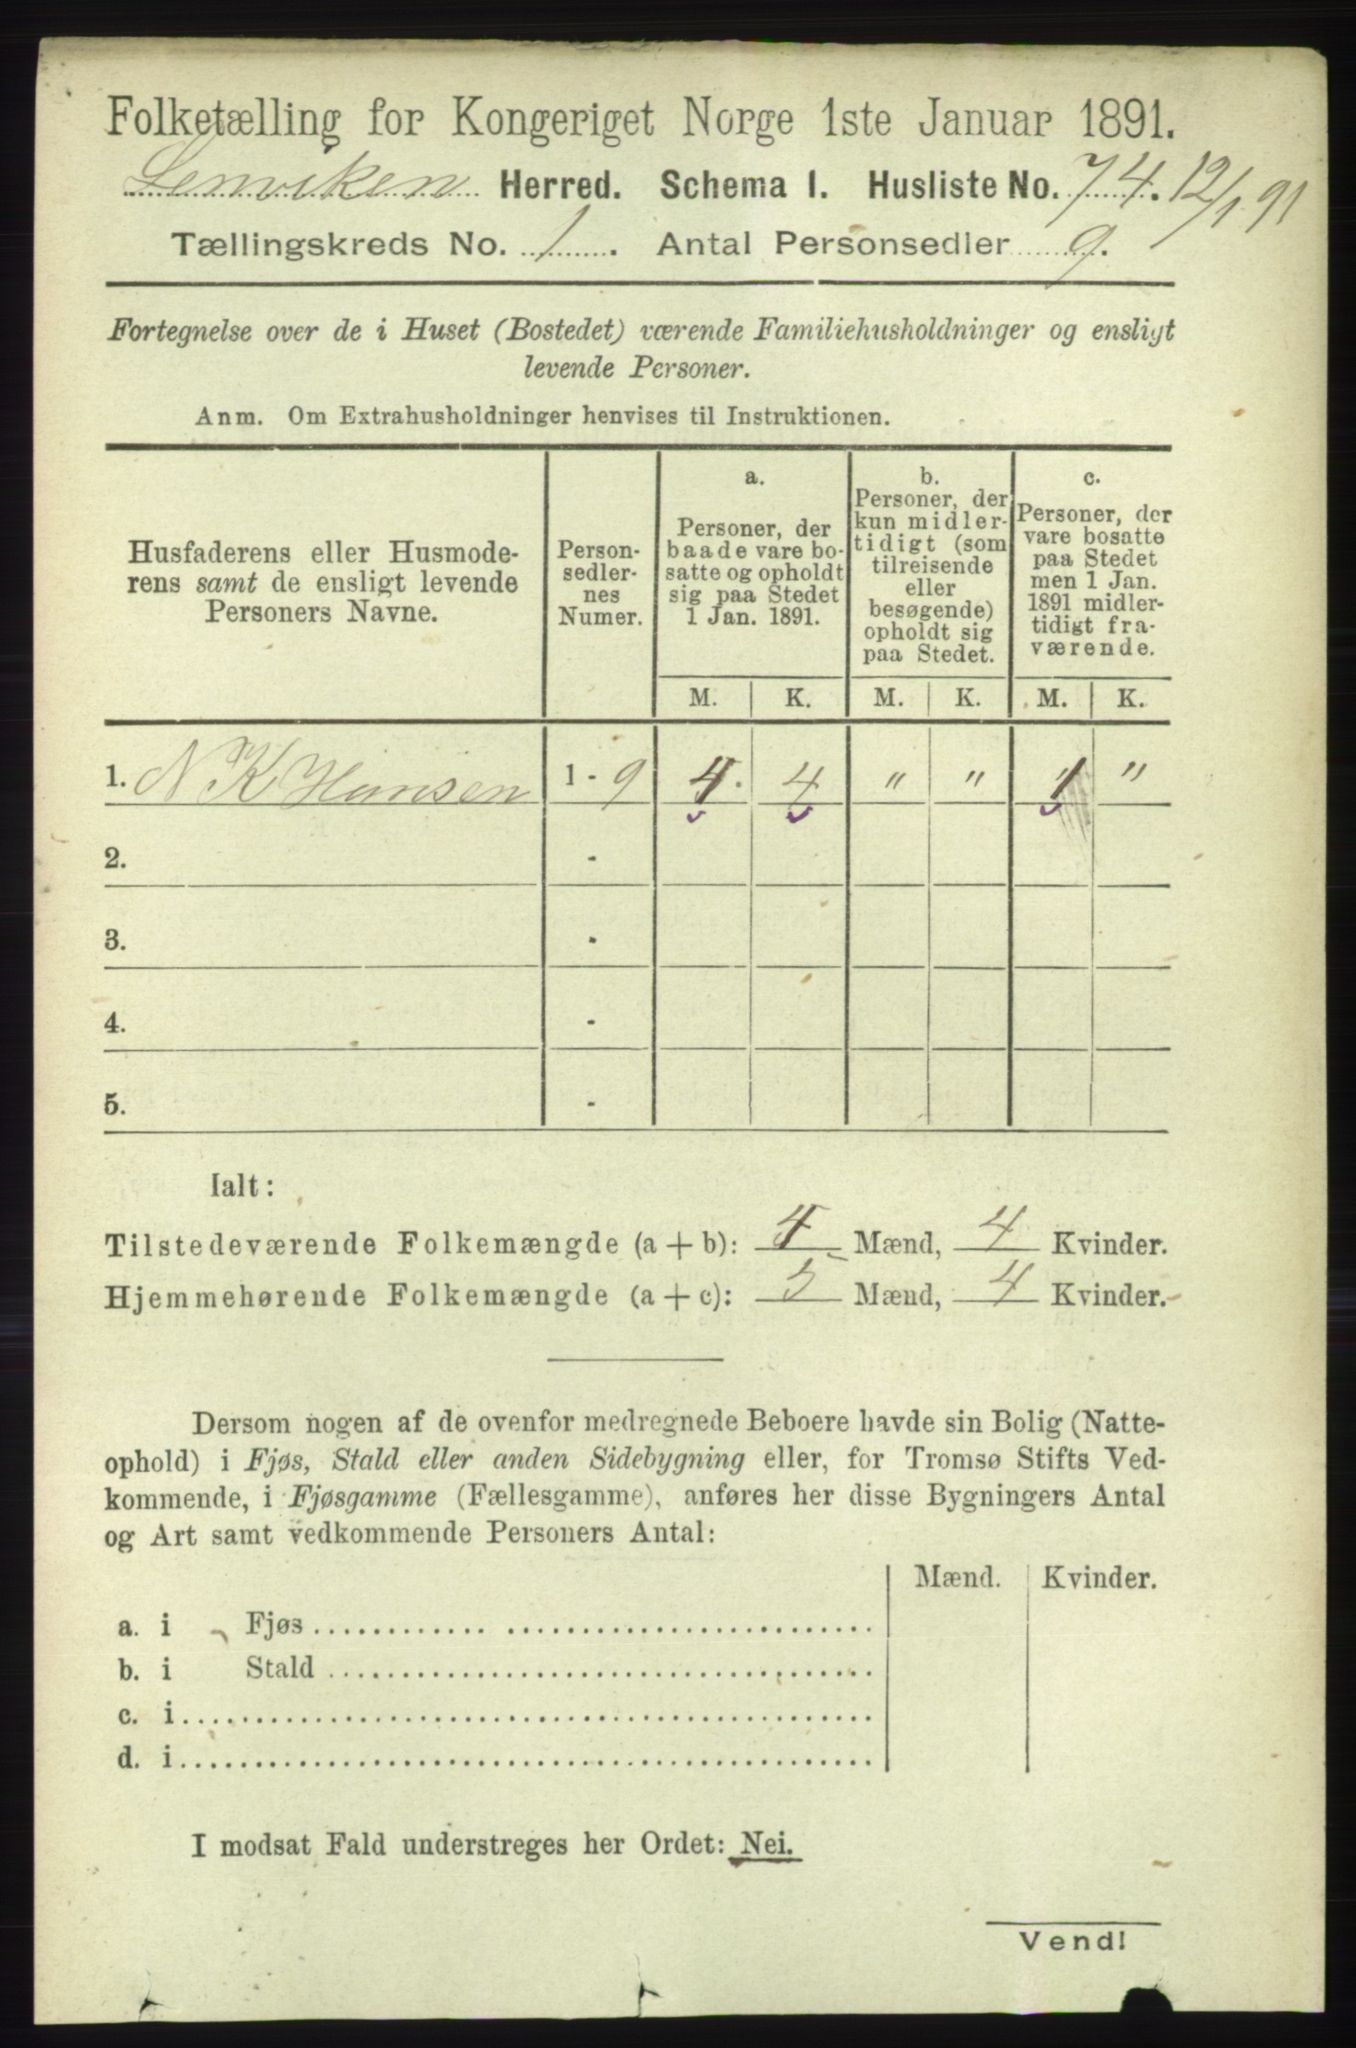 Folketælling for Kongeriget Norge 1ste Januar 1891.
Lenviken Herred. Schema 1. Husliste No. 74. 12/1 91
Tællingskreds No. 1. Antal Personsedler 9.
Fortegnelse over de i Huset (Bostedet) værende Familiehusholdninger og ensligt
levende Personer.
Anm. Om Extrahusholdninger henvises til Instruktionen.
Husfaderens eller Husmode-
rens samt de ensligt levende
Personers Navne.
Person-
sedler-
nes
Numer.
a.
Personer, der
baade vare bo-
satte og opholdt
sig paa Stedet
1 Jan. 1891.
b.
Personer, der
kun midler-
tidigt (som
tilreisende
eller
besøgende)
opholdt sig
paa Stedet.
c.
Personer, der
vare bosatte
paa Stedet
men 1 Jan.
1891 midler-
tidigt fra-
værende.
M. K. M. K. M. K.
1. N K Hansen 1 - 9 4. 4 " " 1 "
2. -
3. -
4. -
5. -
Ialt:
Tilstedeværende Folkemængde (a + b): 4 Mænd, 4 Kvinder.
Hjemmehørende Folkemængde (a + c): 5 Mænd, 4 Kvinder.
Dersom nogen af de ovenfor medregnede Beboere havde sin Bolig (Natte-
ophold) i Fjøs, Stald eller anden Sidebygning eller, for Tromsø Stifts Ved-
kommende, i Fjøsgamme (Fællesgamme), anføres her disse Bygningers Antal
og Art samt vedkommende Personers Antal:
Mænd. Kvinder.
a. i Fjøs
b. i Stald
c. i
d. i
I modsat Fald understreges her Ordet: Nei.
Vend!